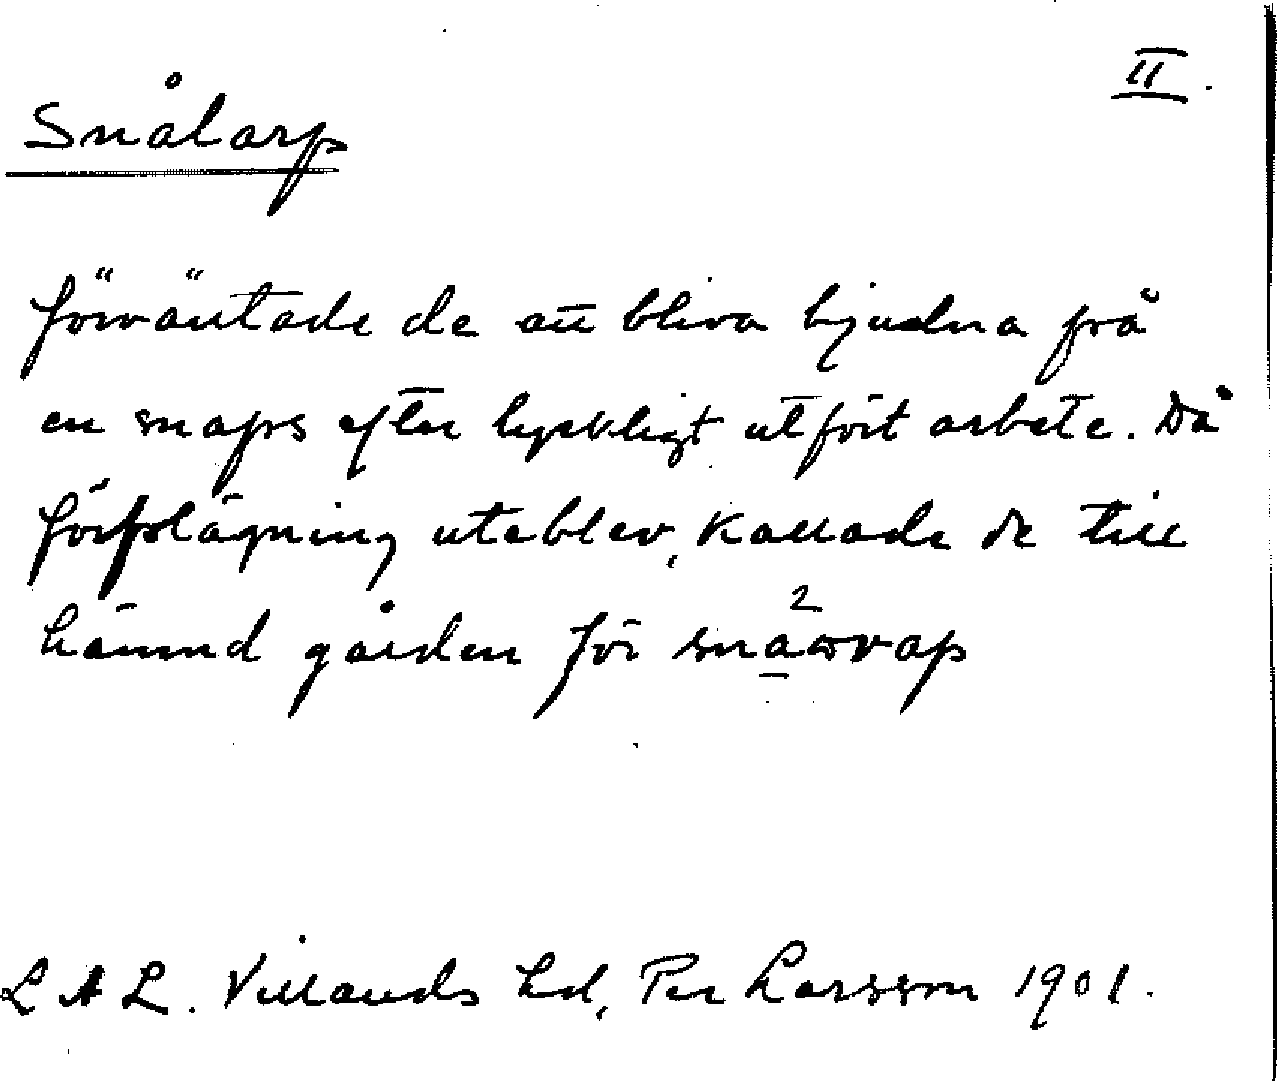 II.
Snålarp
förväntade de att bliva bjudna på
en snaps efter lyckligt utfört arbete. Då
förplägning uteblev, kallade de till
hämnd gården för
LAL. Villands hd, Per Larsson 1901.